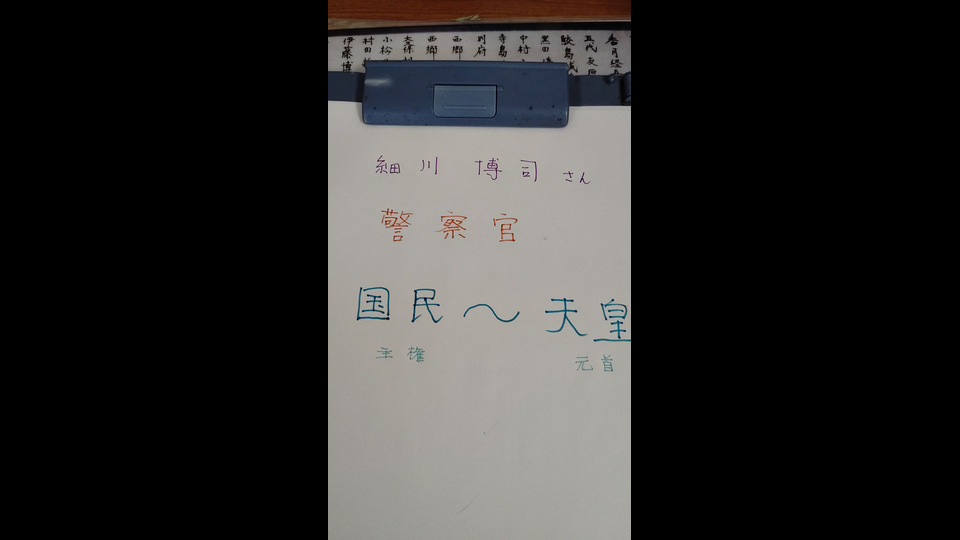 香月経五
五代友厚
鮫島
黒田
中村
寺島
町府
西郷
西郷
大保
小松
村田
伊藤博
細川 博司さん
警察官
国民～天皇
主権 元首